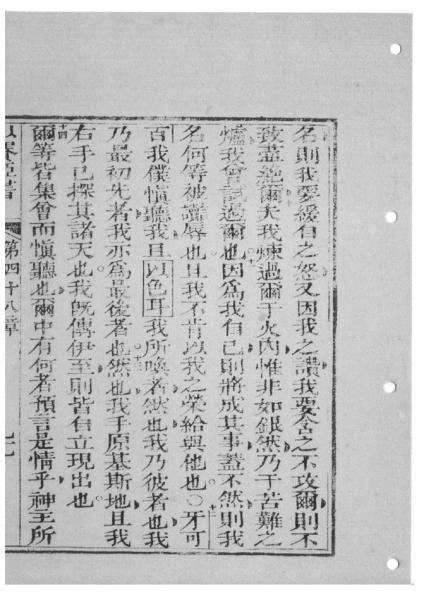 名則我要緩自之怒又因我之讚我要含之不攻爾則不
致盡絕爾夫我煉過爾于火內惟非如銀然乃于苦難之
爐我曾試過爾也因為我自己則將成其事蓋不然則我
名何等被瀆辱也且我不肯以我之榮給與他也○牙可
百我僕慎聽我且以色耳我所喚者然也我乃彼者也我
乃最初先者我亦為最後者也然也我手原基斯地且我
右手已探其諸天也我既傳伊至則皆自立現出也
爾等皆集會而慎聽也爾中有何者預言是情乎神主所
第四十八章